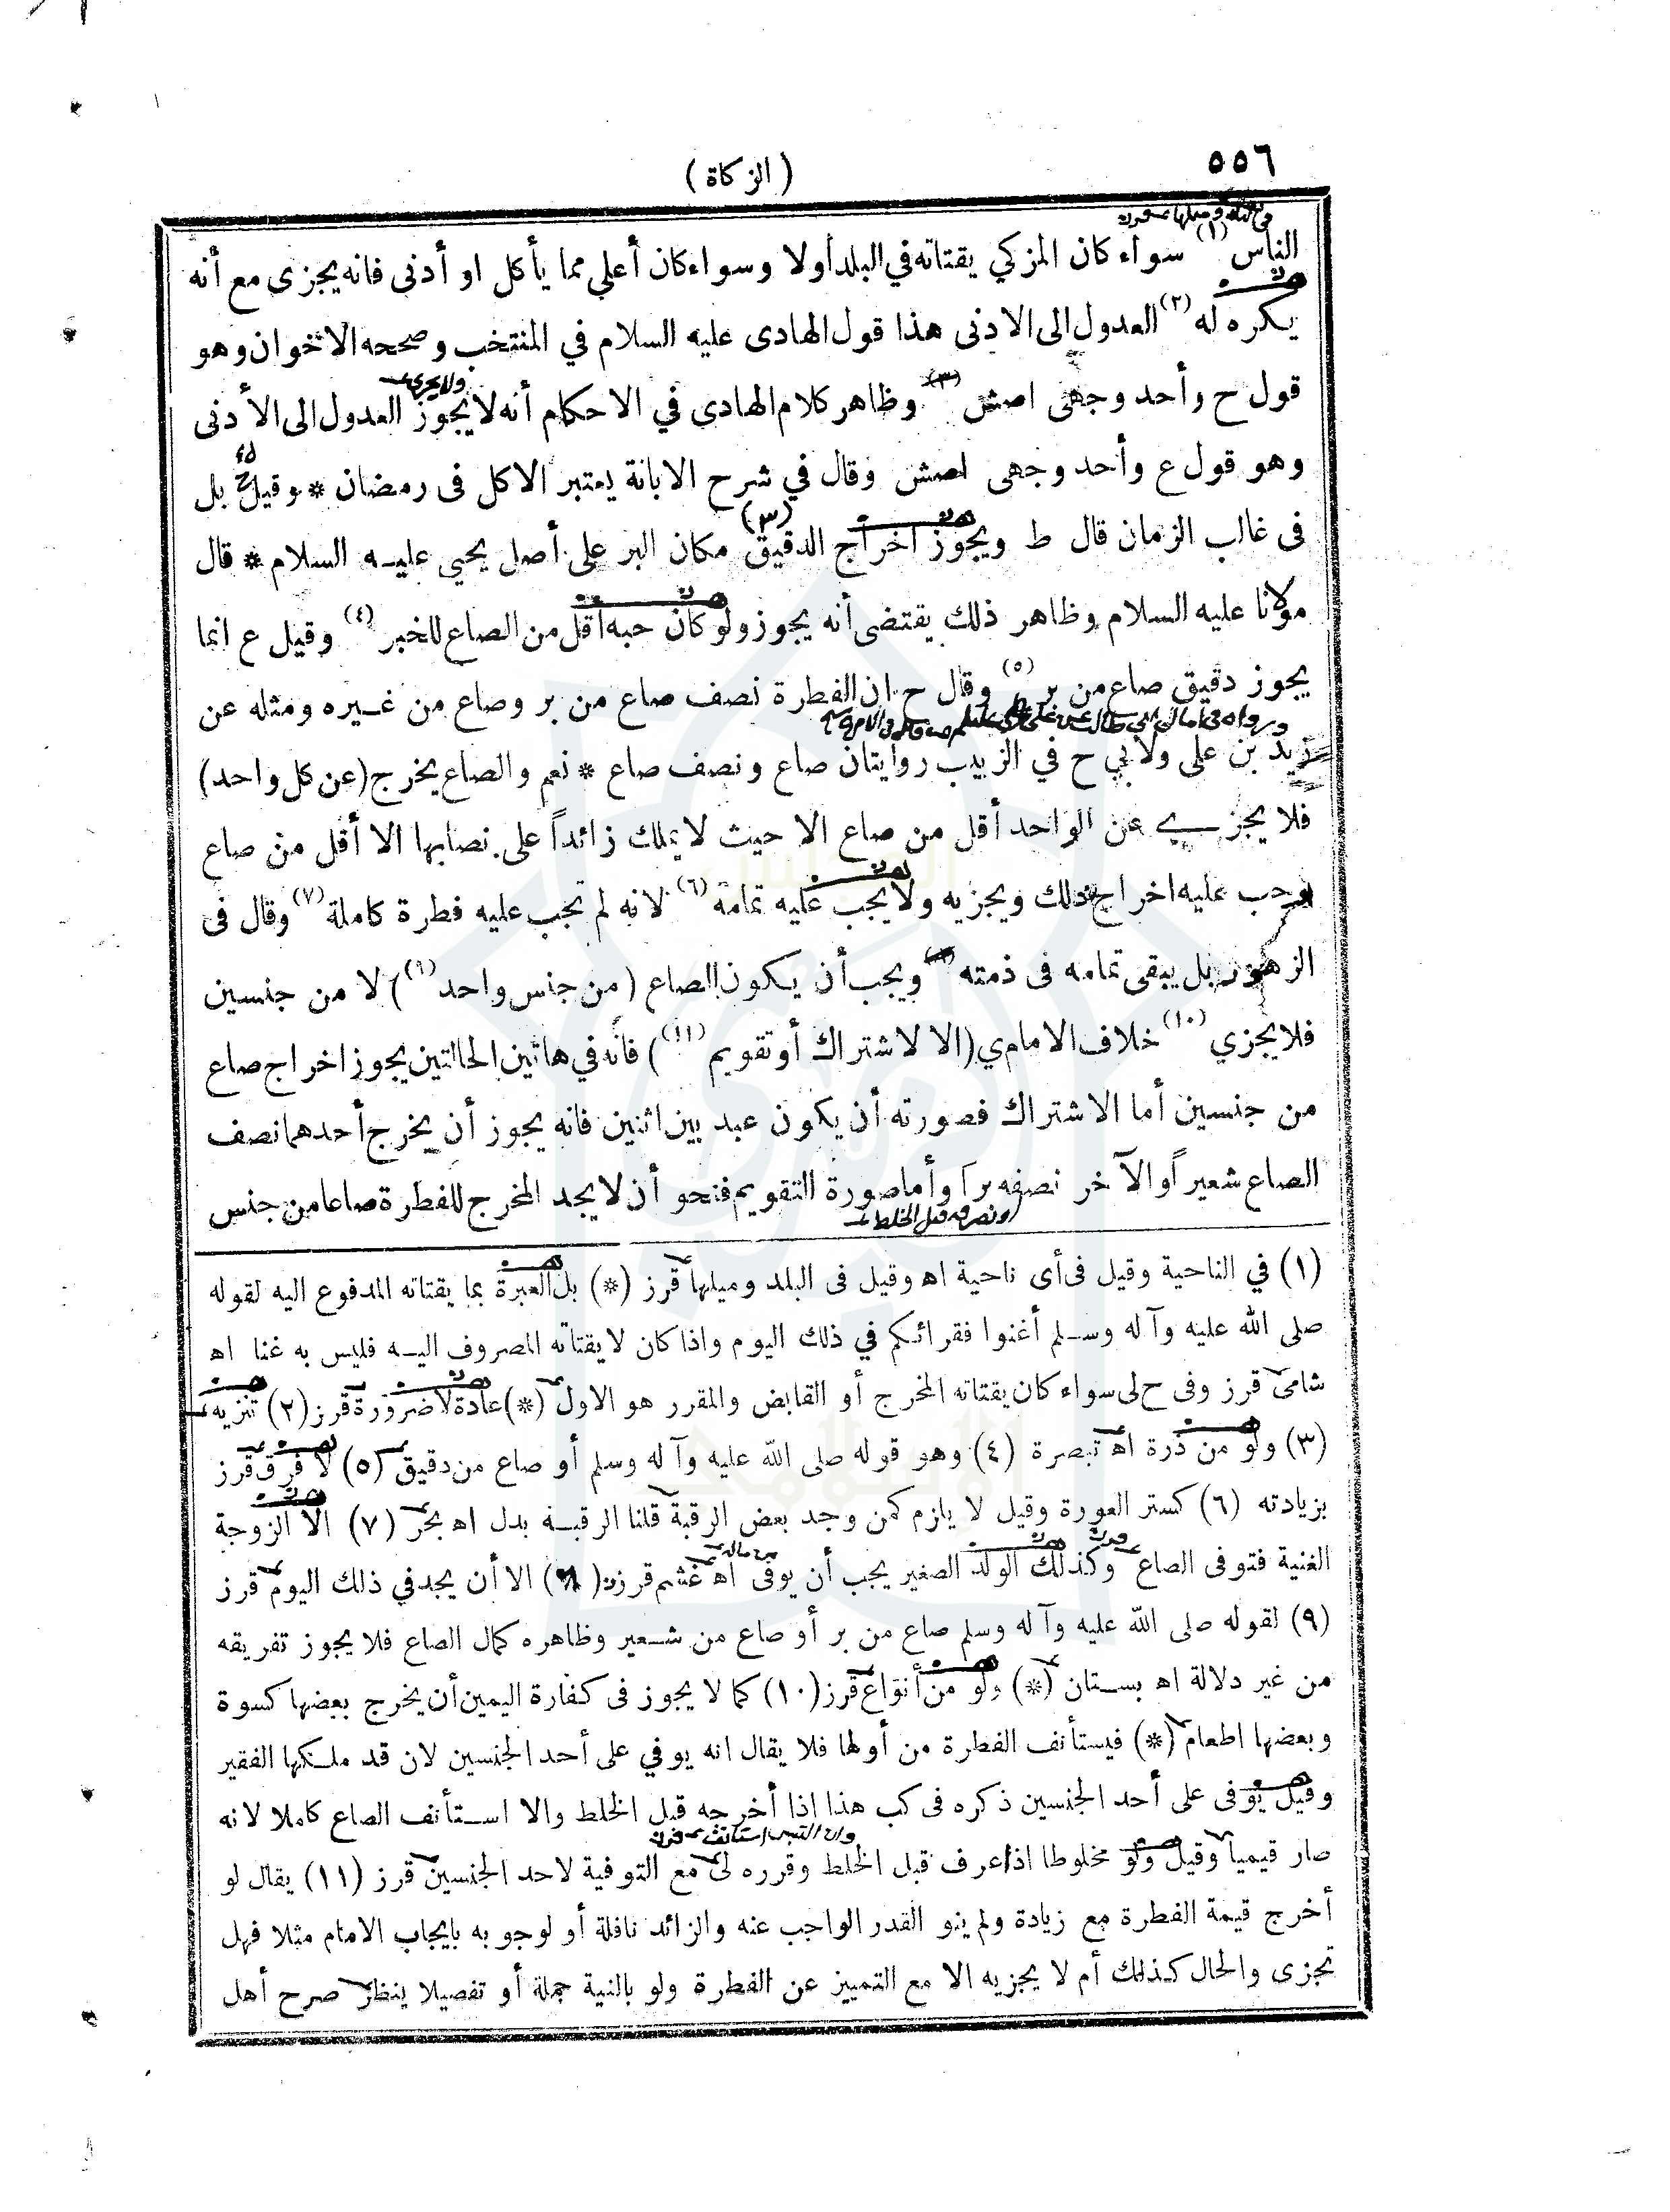 ٥٥٦
( الزكاة )
الناس (١) سواء كان المزكي يقتاته في البلد أو لا وسواء كان أعلى مما يأكل او أدنى فانه يجزى مع أنه
يكره له (٢) العدول الى الادنى هذا قول الهادى عليه السلام في المنتخب وصححه الاخوان وهو
قول ح وأحد وجهى اصش (٣) وظاهر كلام الهادى في الاحكام أنه لا يجوز العدول الى الأدنى
وهو قول ع وأحد وجهى اصش وقال في شرح الابانة يعتبر الاكل فى رمضان * وقيل ح بل
فى غالب الزمان قال ط ويجوز اخراج الدقيق (٣) مكان البر على أصل يحيى عليه السلام * قال
مولانا عليه السلام وظاهر ذلك يقتضى أنه يجوز ولو كان حبه أقل من الصاع للخبر (٤) وقيل ع انما
يجوز دقيق صاع من بر (٥) وقال ح ان الفطرة نصف صاع من بر وصاع من غيره ومثله عن
زيد بن على ولابي ح في الزبيب روايتان صاع ونصف صاع * نعم والصاع يخرج (عن كل واحد)
فلا يجزي عن الواحد أقل من صاع الا حيث لا يملك زائداً على نصابها الا أقل من صاع
وجب عليه اخراج ذلك ويجزيه ولا يجب عليه تمامه (٦) لانه لم تجب عليه فطرة كاملة (٧) وقال فى
الزهور بل يبقى تمامه فى ذمته ويجب أن يكون الصاع (من جنس واحد (٩)) لا من جنسين
فلا يجزي (١٠) خلاف الامام ي (الا لاشتراك أو تقويم (١١)) فانه في هاتين الحالتين يجوز اخراج صاع
من جنسين أما الاشتراك فصورته أن يكون عبد بين اثنين فانه يجوز أن يخرج أحدهما نصف
الصاع شعيراً والآخر نصفه براً وأما صورة التقويم فنحو أن لا يجد المخرج للفطرة صاعا من جنس
(١) في الناحية وقيل فى أى ناحية اه وقيل فى البلد وميلها قرز (*) بل العبرة بما يقتاته المدفوع اليه لقوله
صلى الله عليه وآله وسلم أغنوا فقرائكم في ذلك اليوم واذا كان لا يقتاته المصروف اليه فليس به غنا اه
شامى قرز وفى ح لى سواء كان يقتاته المخرج أو القابض والمقرر هو الاول (*) عادة لا ضرورة قرز (٢) تنزيه
(٣) ولو من ذرة اه تبصرة (٤) وهو قوله صلى الله عليه وآله وسلم أو صاع من دقيق (٥) لا فرق قرز
بزيادته (٦) كستر العورة وقيل لا يلزم كمن وجد بعض الرقبة قلنا الرقبة بدل اه بحر (٧) الا الزوجة
الغنية فتوفى الصاع وكذلك الولد الصغير يجب أن يوفى اه غشم قرز (٨) الا أن يجد في ذلك اليوم قرز
(٩) لقوله صلى الله عليه وآله وسلم صاع من بر أو صاع من شعير وظاهره كمال الصاع فلا يجوز تفريقه
من غير دلالة اه بستان (*) ولو من أنواع قرز (١٠) كما لا يجوز فى كفارة اليمين أن يخرج بعضها كسوة
وبعضها اطعام (*) فيستأنف الفطرة من أولها فلا يقال انه يوفي على أحد الجنسين لان قد ملكها الفقير
وقيل يوفى على أحد الجنسين ذكره فى كب هذا اذا أخرجه قبل الخلط والا استأنف الصاع كاملا لانه
صار قيمياً وقيل ولو مخلوطا اذا عرف قبل الخلط وقرره لى مع التوفية لاحد الجنسين قرز (١١) يقال لو
أخرج قيمة الفطرة مع زيادة ولم ينو القدر الواجب عنه والزائد نافلة أو لوجوبه بايجاب الامام مثلا فهل
تجزى والحال كذلك أم لا يجزيه الا مع التمييز عن الفطرة ولو بالنية جملة أو تفصيلا ينظر صرح أهل